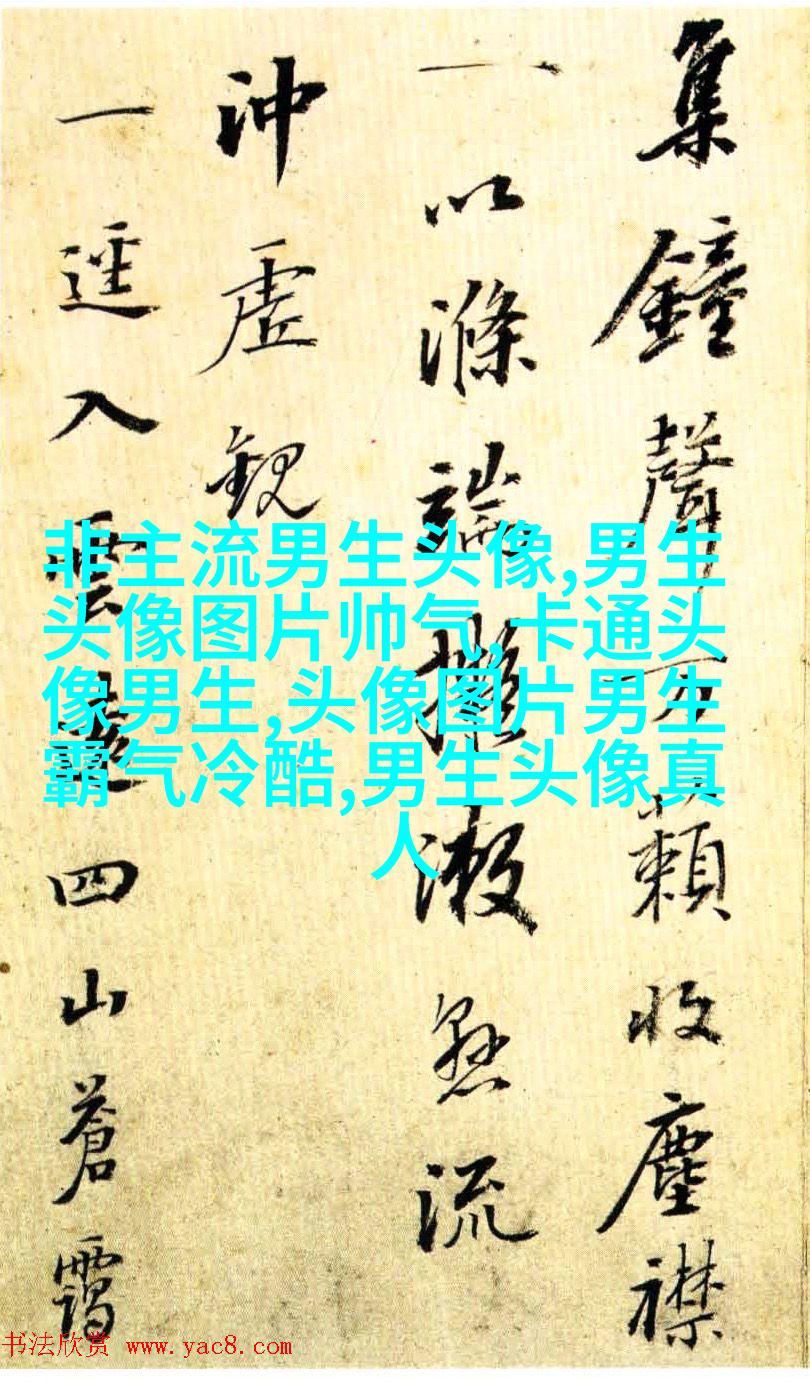 集鐘聲万籟收塵襟
一以滌端撥漱懸流
沖虛觀
一逕入雲遠四山蒼靄
非主流男生头像,男生
头像图片帅气,卡通头
像男生,头像图片男生
霸气冷酷,男生头像真
人
书法欣赏 www.yac8.com